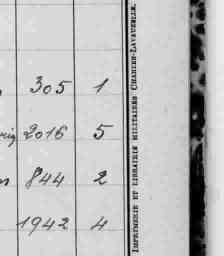 305 1
2016 5
844 2
1942 4
IMPRIMERIE ET LIBRAIRIE MILITAIRES CHARLES-LAVAUZELLE.